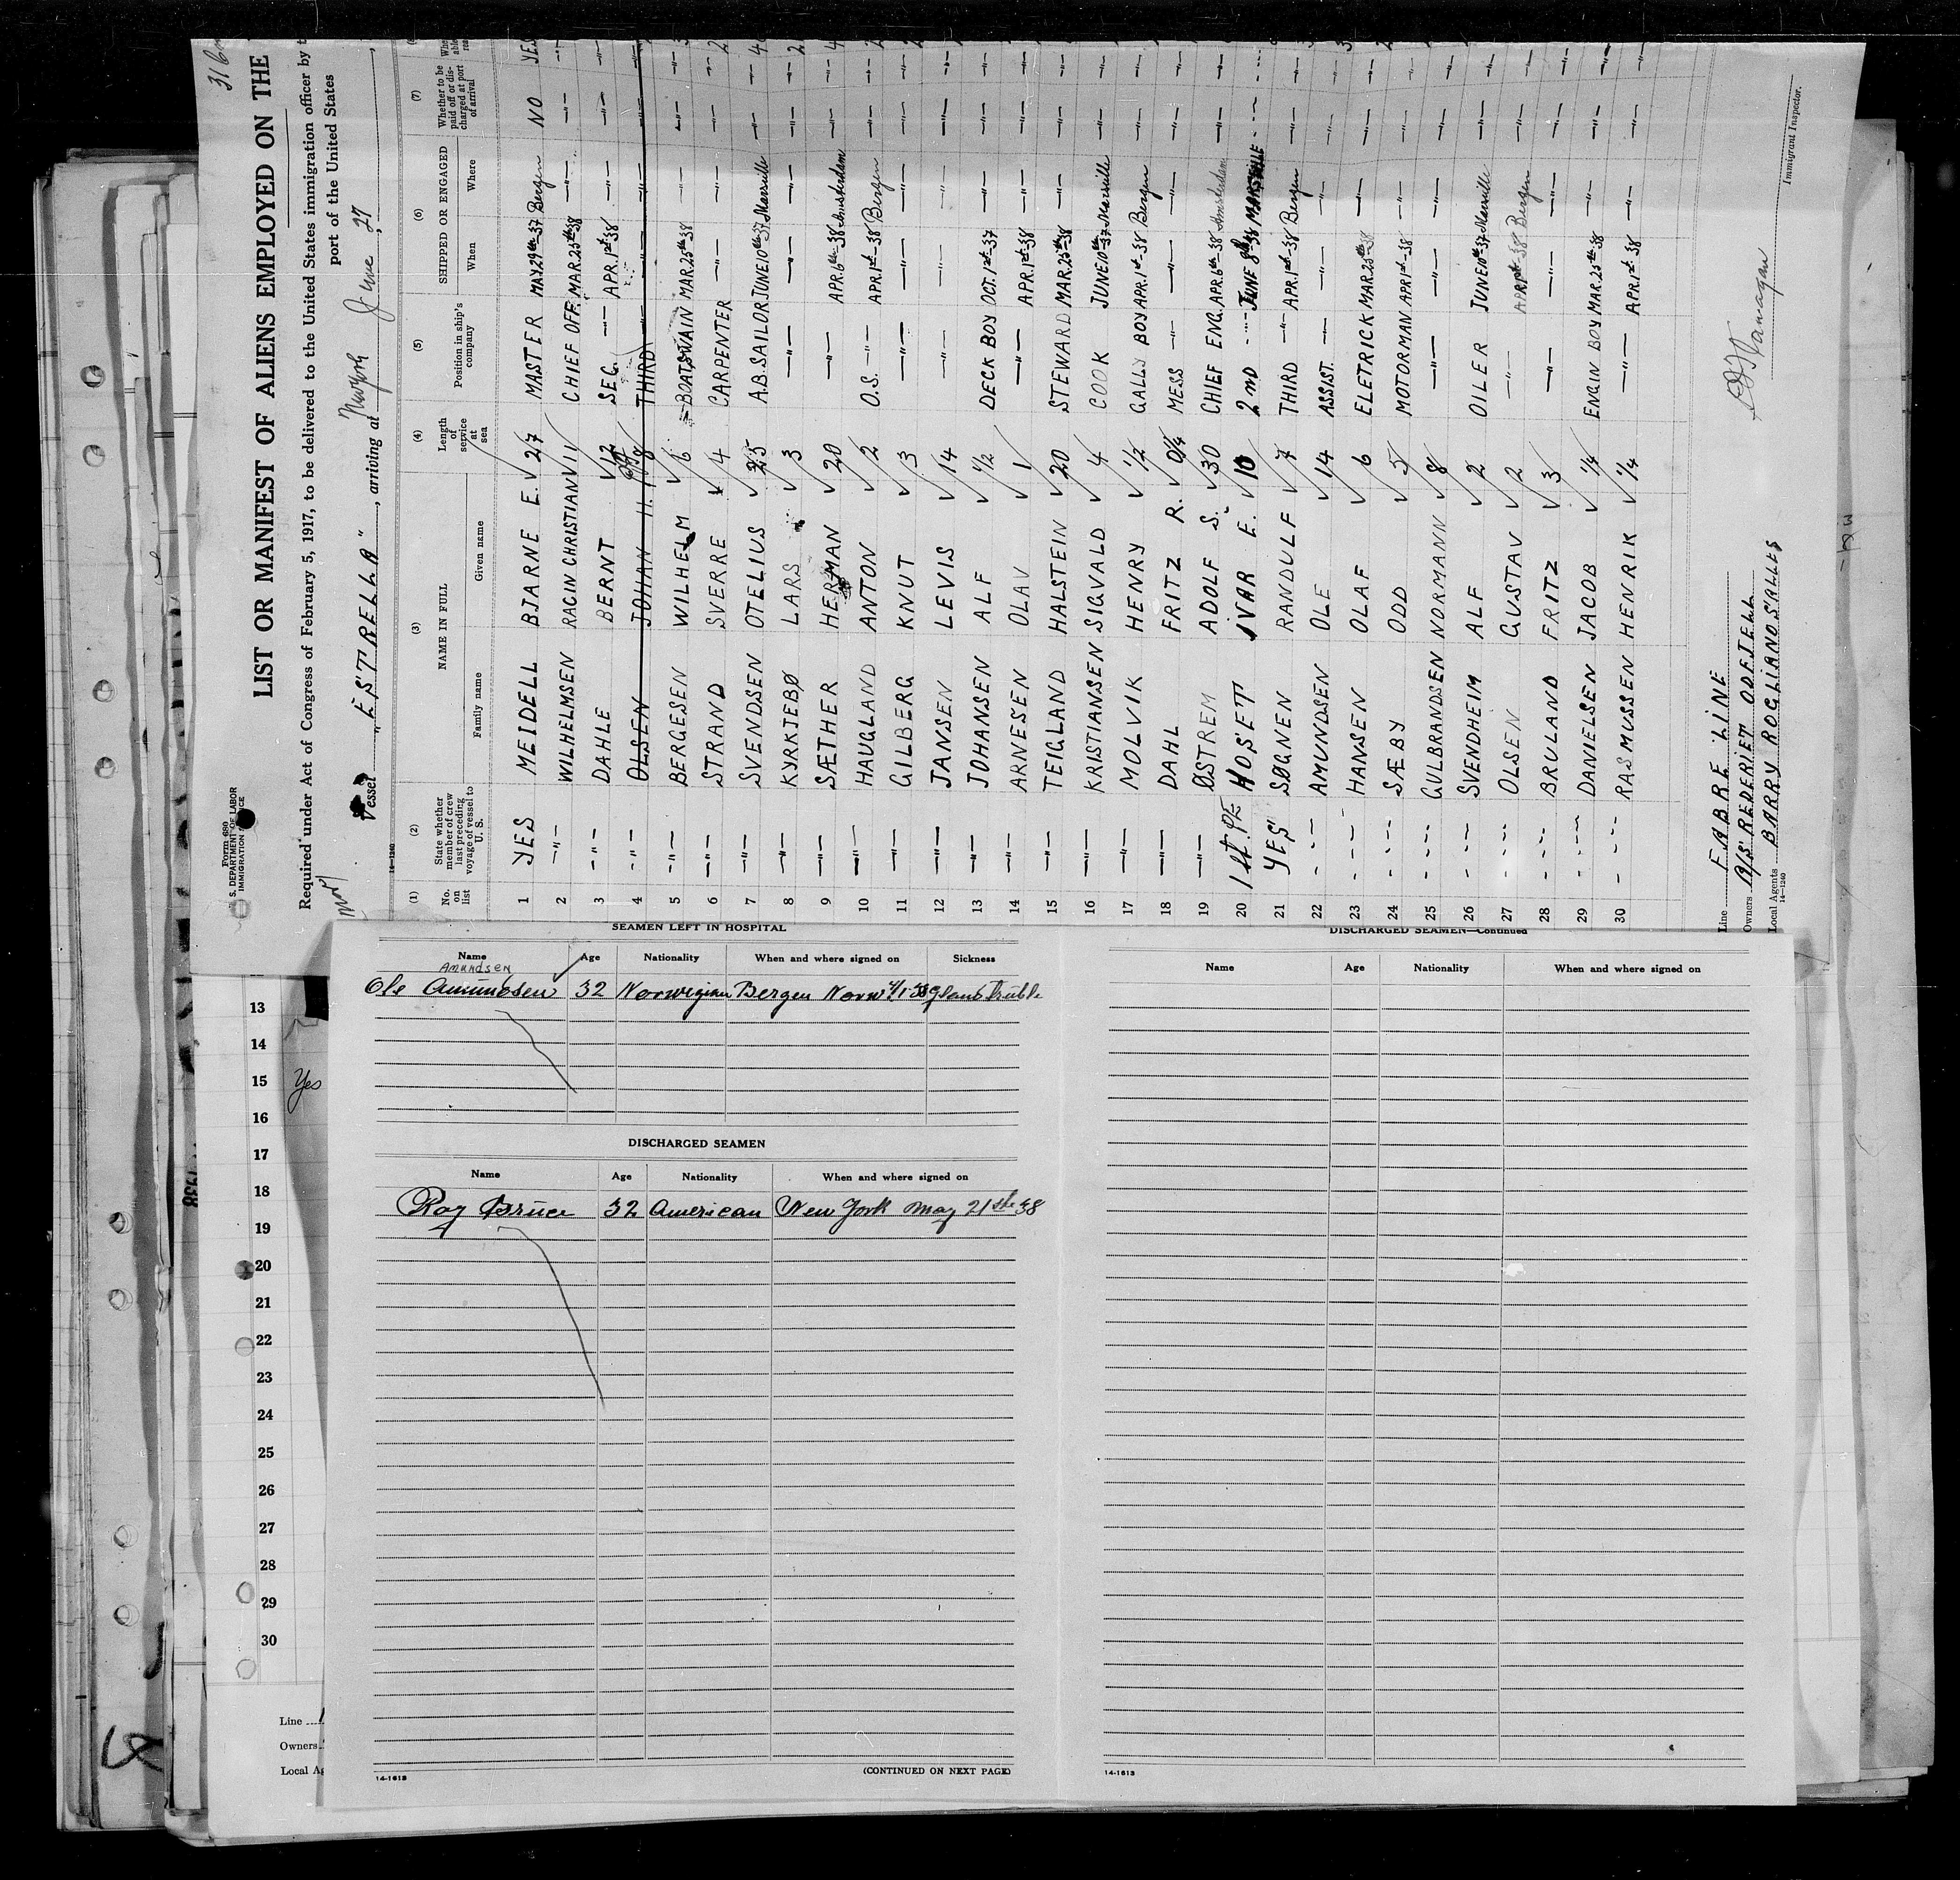 316
Form 680
U. S. DEPARTMENT OF LABOR
IMMIGRATION SERVICE
LIST OR MANIFEST OF ALIENS EMPLOYED ON THE
Required under Act of Congress of February 5, 1917, to be delivered to the United States immigration officer by
port of the United States
Vessel "ESTRELLA", arriving at June 27,
14-1240
(1) (2) (3) (4) (5) (6) (7)
No. on list
State whether member of crew last preceding voyage of vessel to U. S.
NAME IN FULL
Family name Given name
Length of service at sea
Position in ship's company
SHIPPED OR ENGAGED
When Where
Whether to be paid off or discharged at port of arrival
1 YES MEIDELL BJARNE E. 27 MASTER MAY 29th-37 Bergen NO YES
2 -"- WILHELMSEN RAGIN CHRISTIAN 11 CHIEF OFF. MAR.25th-38 -"- -"- -"-
3 -"- DAHLE BERNT 12 SEC. -"- APR.1st-38 -"- -"- -"-
4 -"- OLSEN JOHAN H. 8 THIRD -"- -"- -"- -"- -"-
5 -"- BERGESEN WILHELM 6 BOATSWAIN MAR.25th-38 -"- -"- -"-
6 -"- STRAND SVERRE 4 CARPENTER -"- -"- -"- -"-
7 -"- SVENDSEN OTELIUS 25 A.B. SAILOR JUNE 10th-37 Marseille -"- -"-
8 -"- KYRKJEBØ LARS 3 -"- -"- -"- -"- -"-
9 -"- SÆTHER HERMAN 20 -"- APR.6th-38 Amsterdam -"- -"-
10 -"- HAUGLAND ANTON 2 O.S. -"- APR.1st-38 Bergen -"- -"-
11 -"- GILBERG KNUT 3 -"- -"- -"- -"- -"-
12 -"- JANSEN LEVIS 14 -"- -"- -"- -"- -"-
13 -"- JOHANSEN ALF 1/2 DECK BOY OCT.1st-37 -"- -"- -"-
14 -"- ARNESEN OLAV 1 -"- APR.1st-38 -"- -"- -"-
15 -"- TEIGLAND HALSTEIN 20 STEWARD MAR.25th-38 -"- -"- -"-
16 -"- KRISTIANSEN SIGVALD 4 COOK JUNE 10th-37 Marseille -"- -"-
17 -"- MOLVIK HENRY 1/2 GALLY BOY APR.1st-38 Bergen -"- -"-
18 -"- DAHL FRITZ R. 0 1/4 MESS -"- -"- -"- -"- -"-
19 -"- ØSTREM ADOLF S. 30 CHIEF ENG. APR.6th-38 Amsterdam -"- -"-
20 HOSET IVAR E. 10 2ND -"- JUNE 8th-38 MARSEILLE -"- -"-
21 YES SØGNEN RANDULF 7 THIRD -"- APR.1st-38 Bergen -"- -"-
22 -"- AMUNDSEN OLE 14 ASSIST. -"- -"- -"- -"- -"-
23 -"- HANSEN OLAF 6 ELETRICK MAR.25th-38 -"- -"- -"-
24 -"- SÆBY ODD 5 MOTORMAN APR 1st-38 -"- -"- -"-
25 -"- GULBRANDSEN NORMANN 8 -"- -"- -"- -"- -"-
26 -"- SVENDHEIM ALF 2 OILER JUNE 10th-37 Marseille -"- -"-
27 -"- OLSEN GUSTAV 2 -"- APR 1st-38 Bergen -"- -"-
28 -"- BRULAND FRITZ 3 -"- -"- -"- -"- -"-
29 -"- DANIELSEN JACOB 1/4 ENGIN BOY MAR.25th-38 -"- -"- -"-
30 -"- RASMUSSEN HENRIK 1/4 -"- APR.1st-38 -"- -"- -"-
Line FABRE LINE
Owners A/S REDERIET ODFJELL
Local Agents BARRY ROGLIANO SALLES
14-1240
Immigrant Inspector.
SEAMEN LEFT IN HOSPITAL
Name Age Nationality When and where signed on Sickness
AMUNDSEN
Ole Amundsen 32 Norwegian Bergen Norw 4/1-38
DISCHARGED SEAMEN
Name Age Nationality When and where signed on
Roy Bruce 32 American New York May 21st 38
(CONTINUED ON NEXT PAGE)
14-1613
DISCHARGED SEAMEN—Continued
Name Age Nationality When and where signed on
14-1613
13
14
15 Yes
16
17
18
19
20
21
22
23
24
25
26
27
28
29
30
Line
Owners
Local Ag